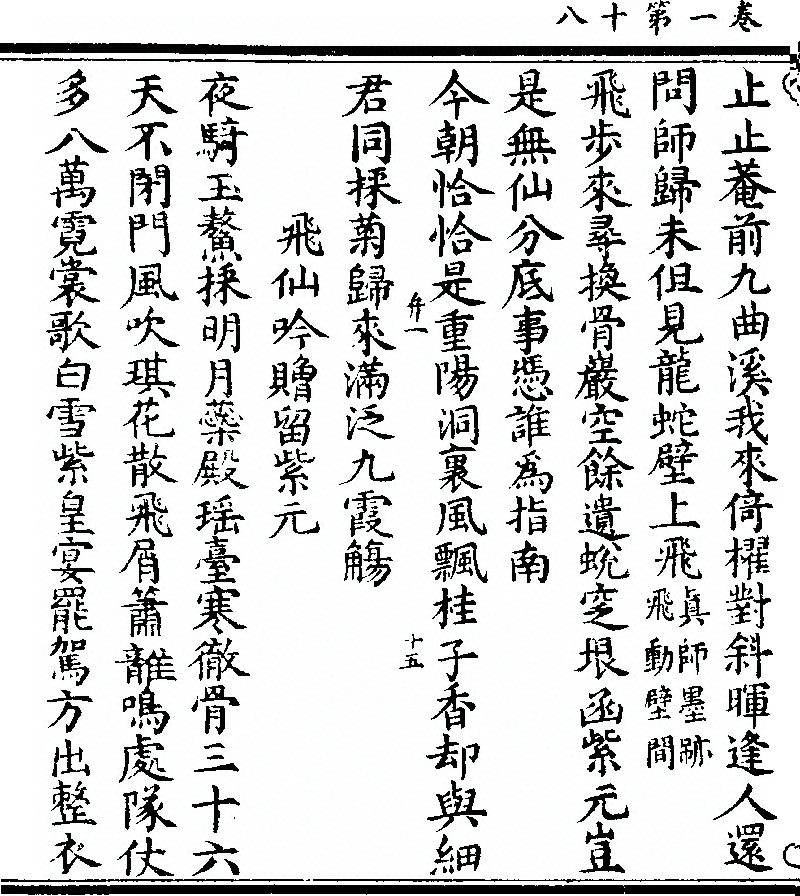 卷一第十八
止止菴前九曲溪我來倚櫂對斜暉逢人還
問師歸未但見龍蛇壁上飛真師墨跡飛動壁間
飛步來尋換骨巖空餘遺蛻空垠函紫元豈
是無仙分底事憑誰為指南
今朝恰恰是重陽洞裏風飄桂子香却與細
弁一
十五
君同採菊歸來滿泛九霞觴
飛仙吟贈留紫元
夜騎玉鰲採明月藥殿瑶臺寒徹骨三十六
天不閉門風吹琪花散飛屑簫韶鳴處隊仗
多八萬霓裳歌白雪紫皇宴罷駕方出整衣